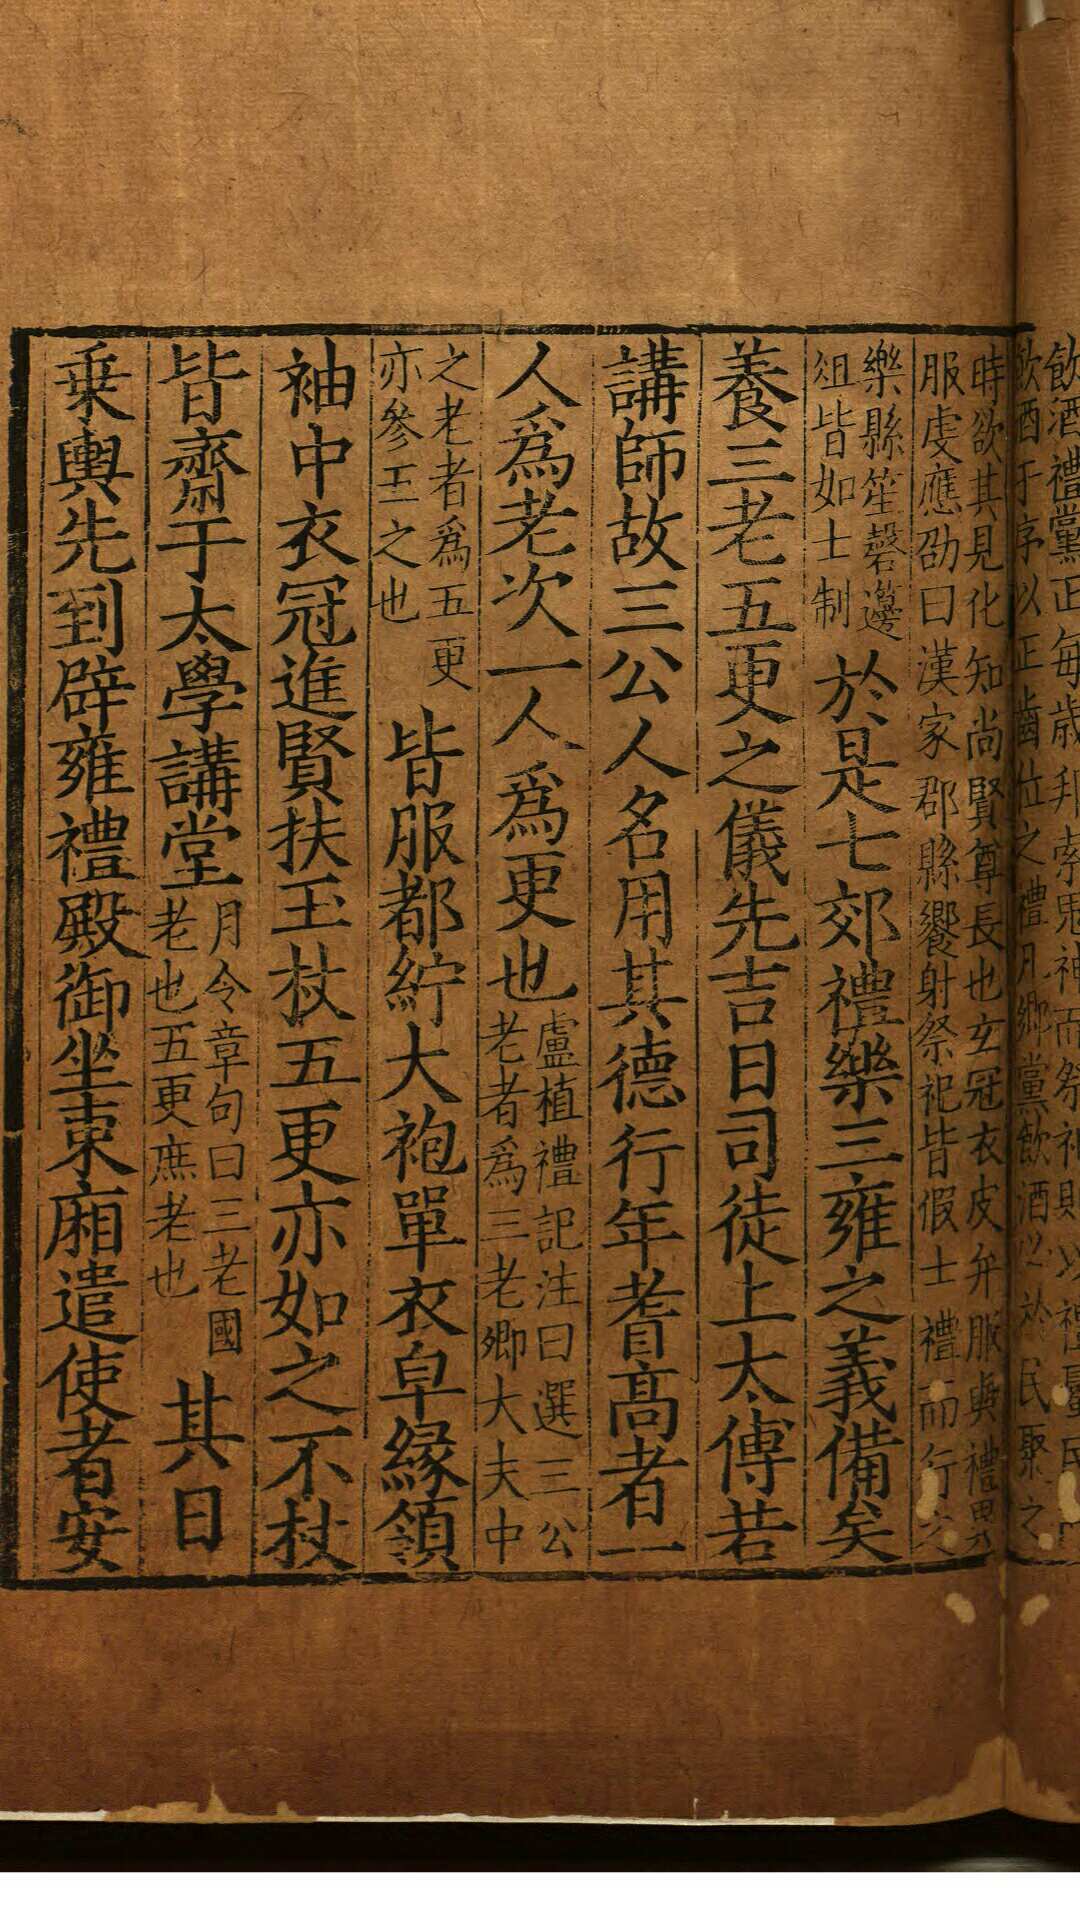 飲酒禮黨正每歲邦索鬼神而祭祀則以禮屬民
飲酒于序以正齒位之禮凡鄉黨飲酒必於民聚之
時欲其見化知尚賢尊長也玄冠衣皮弁服與禮異
服虔應劭曰漢家郡縣饗射祭祀皆假士禮而行之
樂縣笙磬籩
俎皆如士制
於是七郊禮樂三雍之義備矣
養三老五更之儀先吉日司徒上太傅若
講師故三公人名用其德行年耆高者一
人爲老次一人爲更也
盧植禮記注曰選三公
老者爲三老卿大夫中
之老者爲五更
亦參王之也
皆服都紵大袍單衣皁緣領
袖中衣冠進賢扶玉杖五更亦如之不杖
皆齋于太學講堂
月令章句曰三老國
老也五更庶老也
其日
乗輿先到辟雍禮殿御坐東廂遣使者安